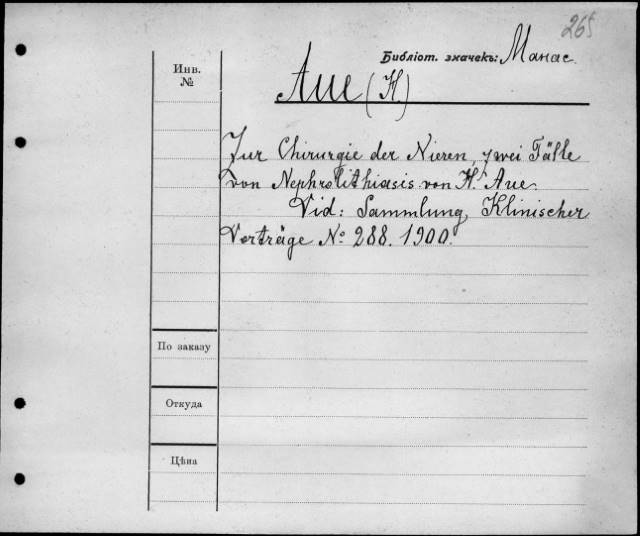 265
Библіот. значекъ: Манас.
Инв.
№
Aue (H.)
Zur Chirurgie der Nieren, zwei Fälle
von Nephrolithiasis von H. Aue.
Vid: Sammlung Klinischer
Vorträge No. 288. 1900.
По заказу
Откуда
Цѣна